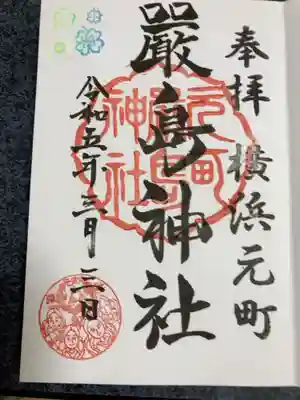 奉拝 横浜元町
嚴島神社
元町
嶋神社
令和五年三月三日